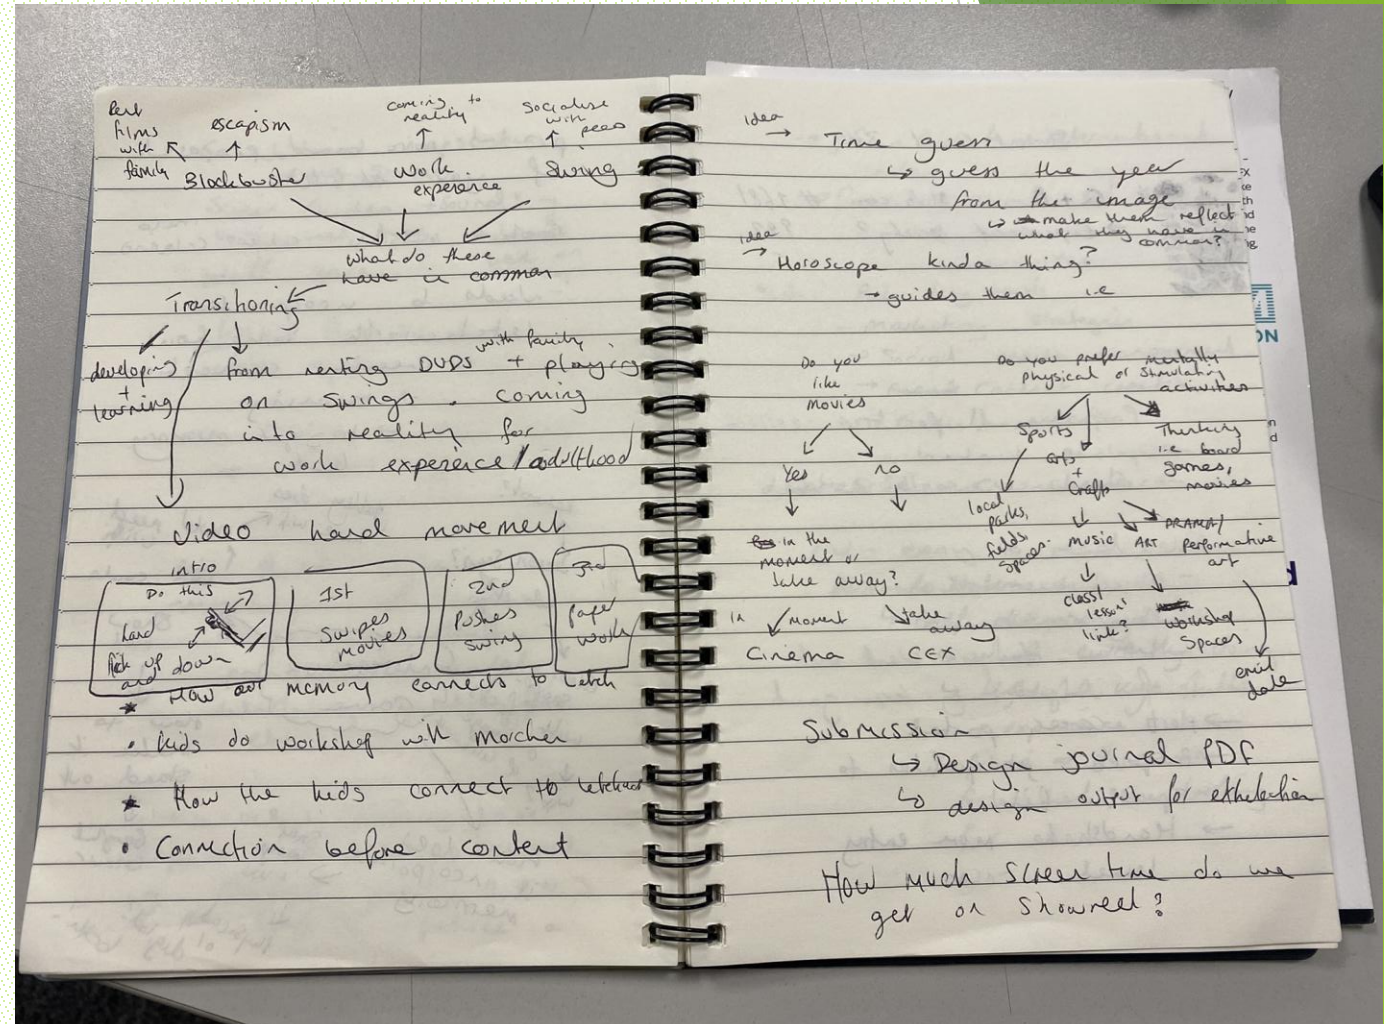 Rent films with family
escapism
coming to reality
Socialise with peers
Blockbuster
work experience
Swing
what do these
have in common
Transitioning
developing
+
learning
with family
from renting DVDs + playing
on swings. coming
into reality for
work experience / adulthood
Video hand movement
intro
Do this
hand
Pick up
and down
1st
Swipes
movies
2nd
Pushes
swing
3rd
paper
work
* How our memory connects to Letch
• kids do workshop with
* How the kids connect to
• Connection before content
idea
→ Time guess
↳ guess the year
from the image
↳ make them reflect
what they have in
common?
idea
→ Horoscope kinda thing?
→ guides them i.e
Do you
like
movies
Yes
no
in the
moment or
take away?
in moment
take
away
Cinema
CEX
Do you prefer mentally
physical or stimulating
activities
Sports
arts
+
Crafts
Thinking
i.e board
games,
movies
local
parks,
fields,
spaces.
music
ART
DRAMA/
performative
art
class/
lesson
link?
workshop
spaces
Submission
↳ Design journal PDF
↳ design output for exhibition
How much screen time do we
get on showreel?